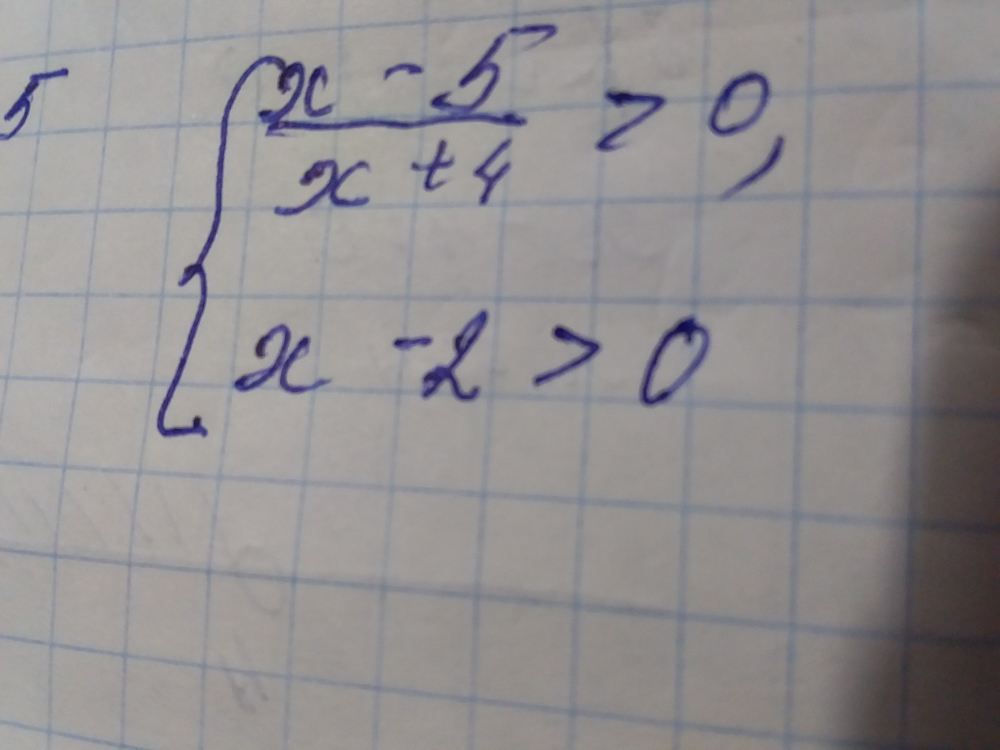 5 { x - 5 / x + 4 > 0,
x - 2 > 0